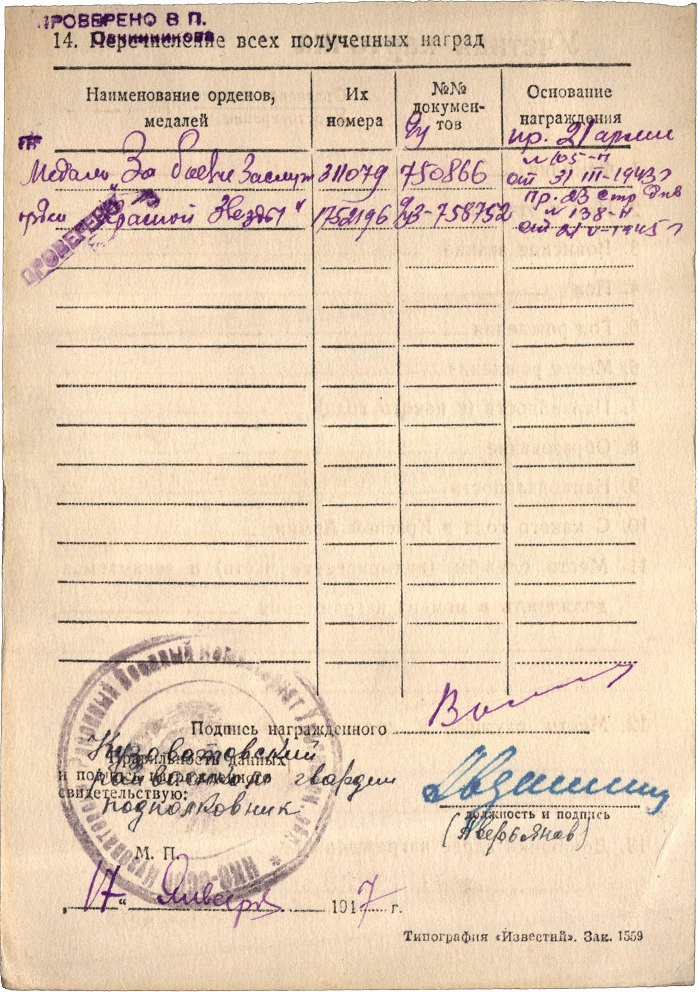 ПРОВЕРЕНО В П.
Овчинникова
14. Перечисление всех полученных наград
Наименование орденов, медалей
Их номера
№№ документов
Основание награждения
Медаль За боевые Заслуги 311079 750866
пр. 21 армии
№ 105-н
от 31 III-1943 г
"Красной Звезды" 1752196 750752
Пр. 23 стр Див
№ 138-н
от 21 V-1945 г
ПРОВЕРЕНО
Подпись награжденного
Правильность данных
и подпись награжденного
свидетельствую:
Кузоватовский
райвоенком гвардии
подполковник
должность и подпись
(Аверьянов)
М. П.
„17" Января 1947 г.
Типография «Известий». Зак. 1559